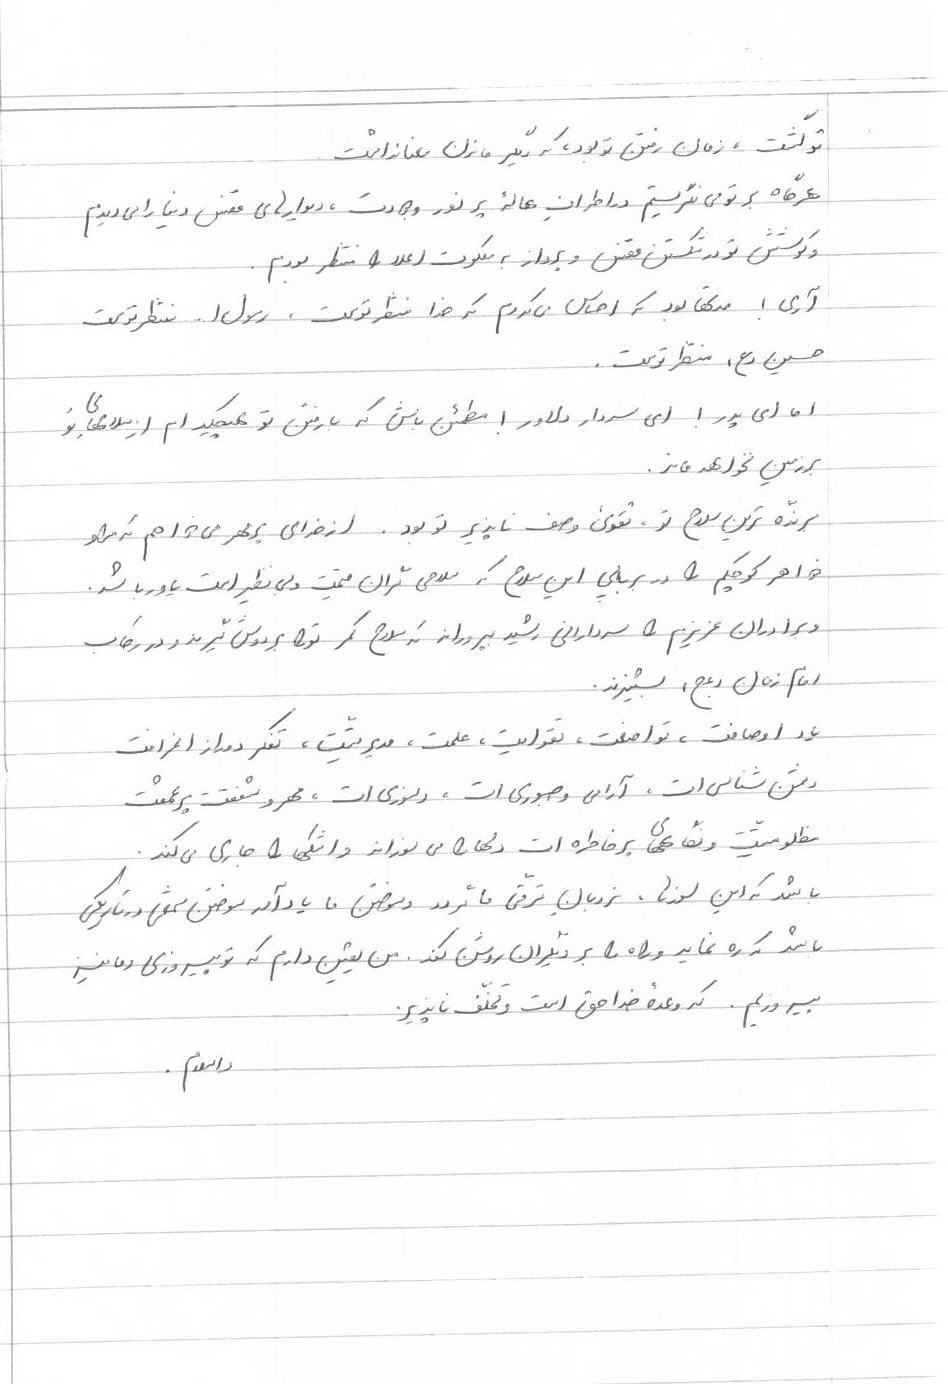 تو گذشت ، زمان رفتن تو بود، که دیگر ماندن معنا نداشت
هرگاه بر تو می نگریستم در اطراف هالهٔ پر نور وجودت ، دیوارهای قفس دنیا را می دیدم
و کوشش تو در شکستن قفس و پرواز به ملکوت اعلا را منتظر بودم .
آری ! مدتها بود که احساس می کردم که خدا منتظر توست ، رسول ا.. منتظر توست
حسین (ع) منتظر توست .
اما ای پدر ! ای سردار دلاور ! مطمئن باش که با رفتن تو هیچیک ام از سلاحهای تو
بر زمین نخواهد ماند .
برنده ترین سلاح تو ، تقوی وصف ناپذیر تو بود . از خدای پر مهر می خواهم که مرا و
خواهر کوچکم را در برپایی این سلاح که سلاحی گران قیمت و بی نظیر است یاور باشد .
و برادران عزیزم را سردارانی رشید بپروراند که سلاح گرم تو را بر دوش گیرند و در رکاب
امام زمان (عج) بستیزند .
یاد اوصافت ، تواضعت ، تقوایت ، علمت ، مدیریّتت ، تفکر دور از انحرافت
دشمن شناسی ات ، آرامی و صبوری ات ، دلسوزی ات ، مهر و شفقت پر عمقت
مظلومیّتت و نگاههای پر خاطره ات دلها را می لوزاند و اشکها را جاری می کند .
باشد که این لوزها ، نردبان ترقّی ما گردد و سوختن ما یادآور سوختن شمعی در تاریکی
باشد که ره نماید و راه را بر دیگران روشن کند . من یقین دارم که تو پیروزی و ما نیز
پیروزیم . که وعدهٔ خدا حق است و تخلّف ناپذیر .
والسلام .